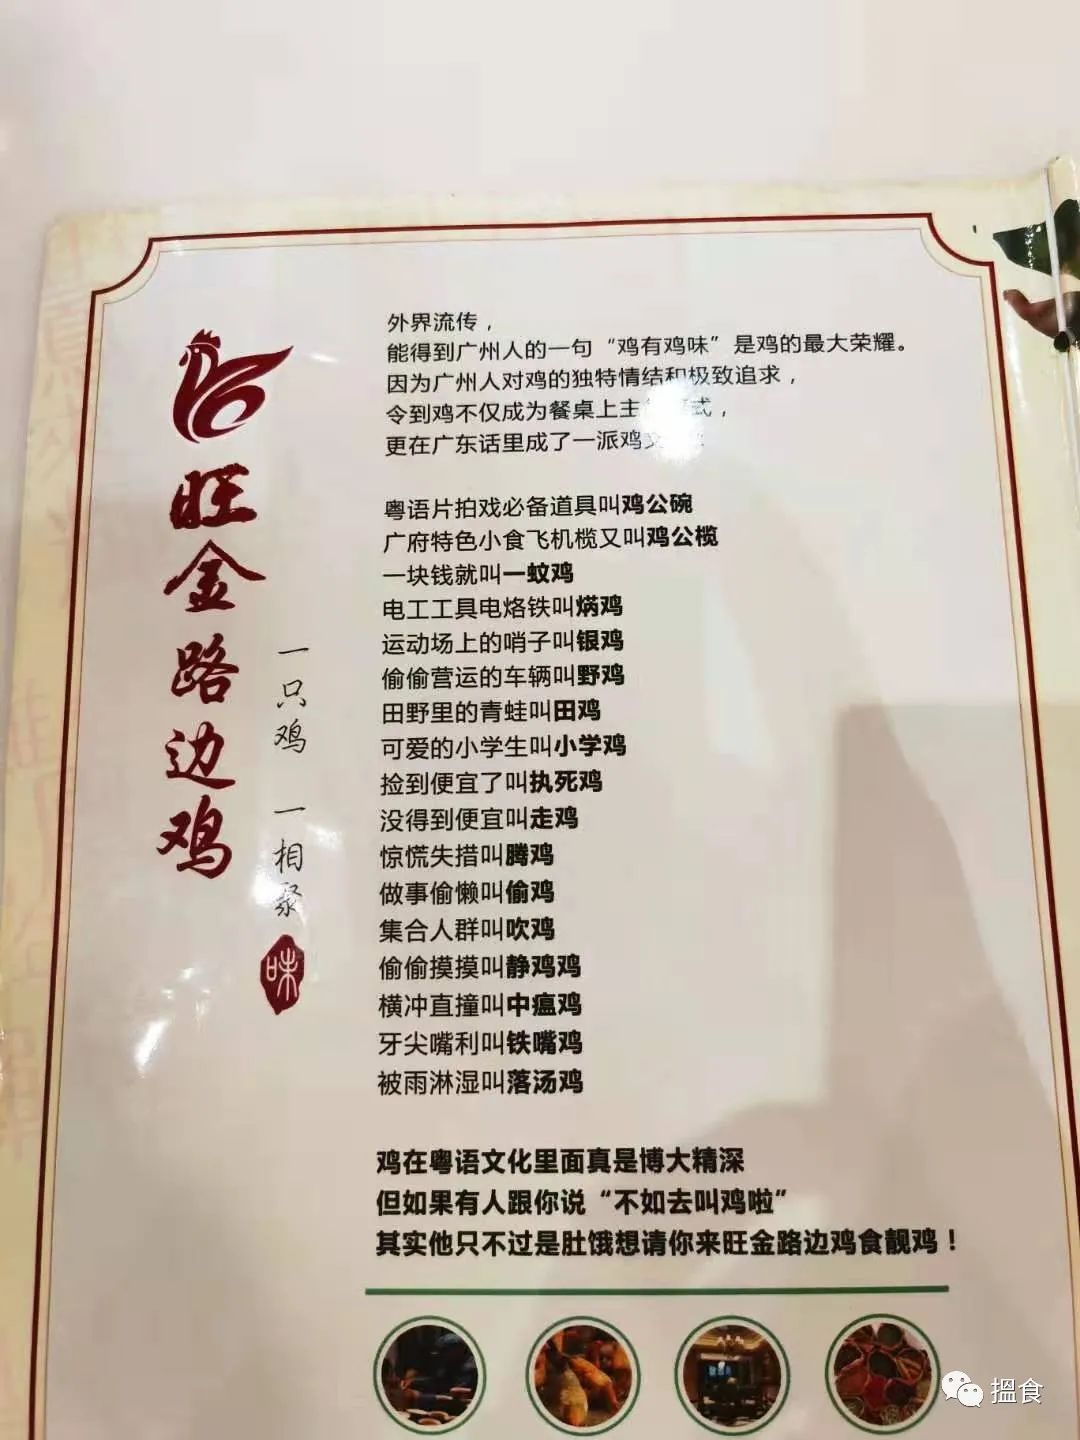 外界流传，
能得到广州人的一句“鸡有鸡味”是鸡的最大荣耀。
因为广州人对鸡的独特情结和极致追求，
令到鸡不仅成为餐桌上主 式，
更在广东话里成了一派鸡文
粤语片拍戏必备道具叫鸡公碗
广府特色小食飞机榄又叫鸡公榄
一块钱就叫一蚊鸡
电工工具电烙铁叫焫鸡
运动场上的哨子叫银鸡
偷偷营运的车辆叫野鸡
田野里的青蛙叫田鸡
可爱的小学生叫小学鸡
捡到便宜了叫执死鸡
没得到便宜叫走鸡
惊慌失措叫腾鸡
做事偷懒叫偷鸡
集合人群叫吹鸡
偷偷摸摸叫静鸡鸡
横冲直撞叫中瘟鸡
牙尖嘴利叫铁嘴鸡
被雨淋湿叫落汤鸡
鸡在粤语文化里面真是博大精深
但如果有人跟你说“不如去叫鸡啦”
其实他只不过是肚饿想请你来旺金路边鸡食靓鸡！
旺金路边鸡
一只鸡 一相聚
味
搵食